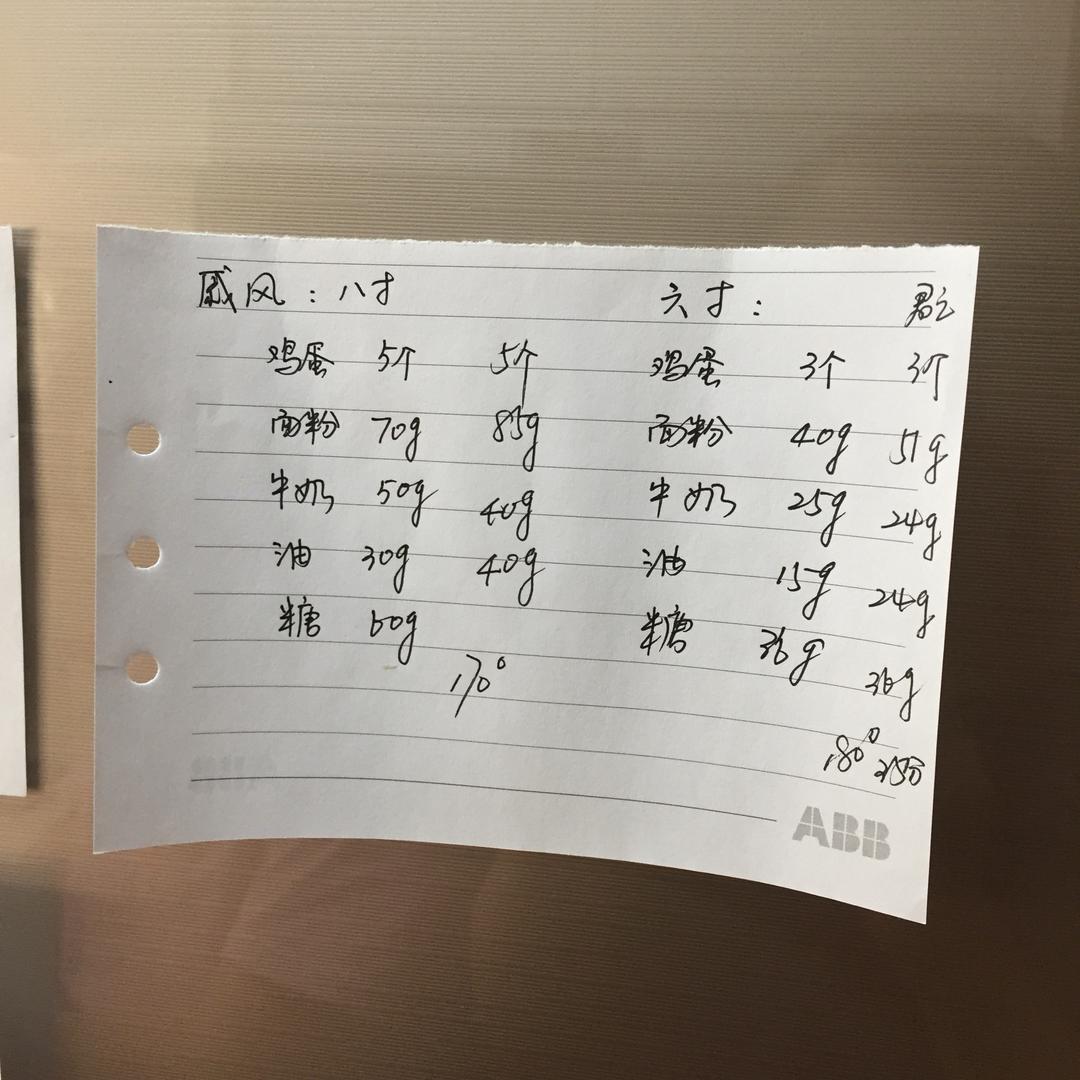 戚风：八寸 六寸：君之
鸡蛋 5个 5个 鸡蛋 3个 3个
面粉 70g 85g 面粉 40g 51g
牛奶 50g 40g 牛奶 25g 24g
油 30g 40g 油 15g 24g
糖 60g 糖 36g 36g
170°
180° 35分
ABB